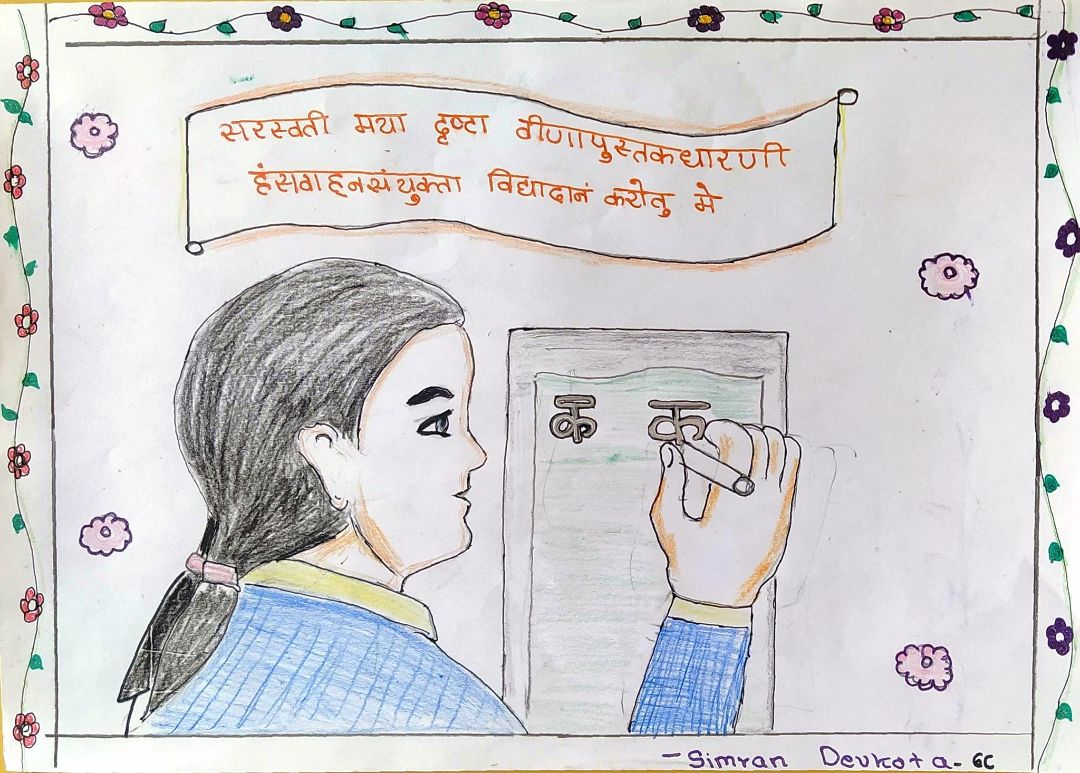 सरस्वती मया दृष्टा वीणापुस्तकधारणी
हंसवाहनसंयुक्ता विद्यादानं करोतु मे
क क
-Simran Devkota- 6C